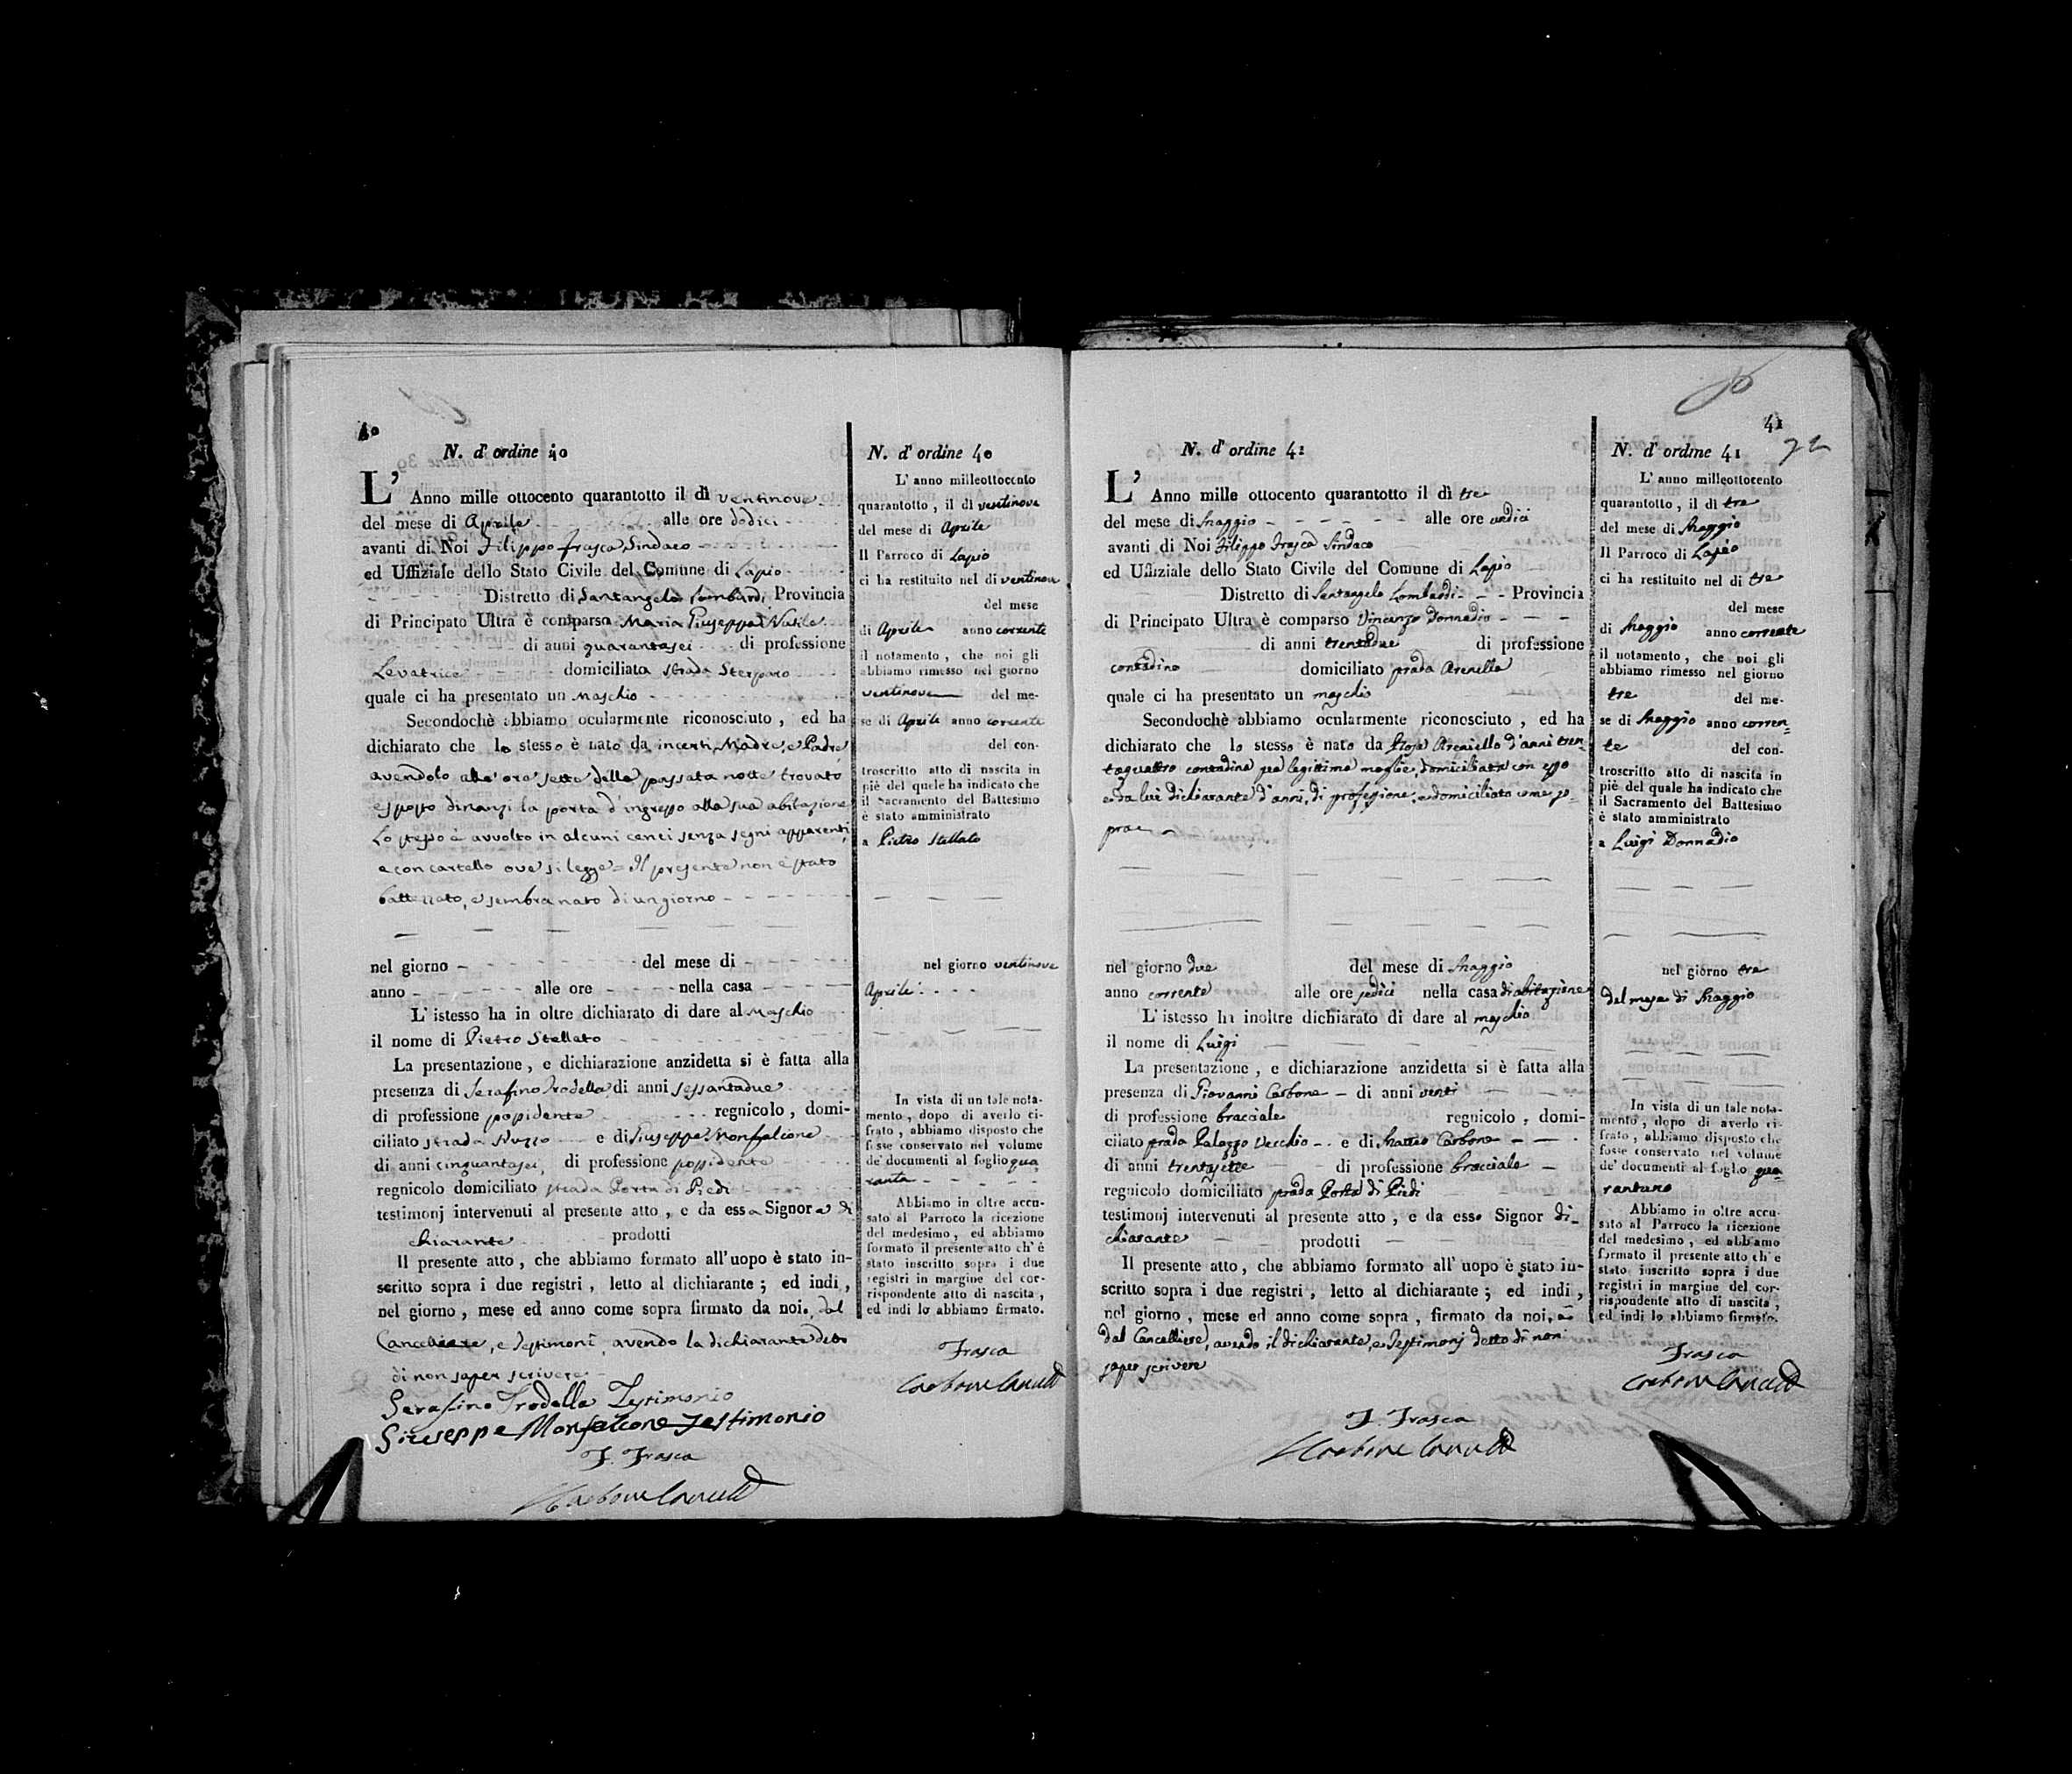 40
N. d'ordine 40
L' Anno mille ottocento quarantotto il dì ventinove
del mese di Aprile alle ore dodici
avanti di Noi Filippo Frasca Sindaco
ed Uffiziale dello Stato Civile del Comune di Lapio
Distretto di Santangelo Lombardi Provincia
di Principato Ultra è comparsa Maria Giuseppa
di anni quarantasei di professione
Levatrice domiciliata strada Sterparo
quale ci ha presentato un Maschio
Secondochè abbiamo ocularmente riconosciuto, ed ha
dichiarato che lo stesso è nato da incerti Madre, e Padre
avendolo alle ore sette della passata notte trovato
esposto dinanzi la porta d'ingresso alla sua abitazione
Lo stesso è avvolto in alcuni cenci senza segni apparenti,
e con cartello ove si legge = Il presente non è stato
battezzato, e sembra nato di un giorno
nel giorno - del mese di -
anno - alle ore - nella casa -
L' istesso ha in oltre dichiarato di dare al Maschio
il nome di Pietro Stellato
La presentazione, e dichiarazione anzidetta si è fatta alla
presenza di Serafino Trodella di anni sessantadue
di professione possidente regnicolo, domi-
ciliato strada e di Giuseppe Monfalcone
di anni cinquantasei, di professione possidente
regnicolo domiciliato strada Porta di Piedi
testimonj intervenuti al presente atto, e da essa Signora di
chiarante prodotti
Il presente atto, che abbiamo formato all'uopo è stato in-
scritto sopra i due registri, letto al dichiarante; ed indi,
nel giorno, mese ed anno come sopra firmato da noi, dal
Cancelliere, e Testimoni, avendo la dichiarante detto
di non saper scrivere
Serafino Trodella Testimonio
Giuseppe Monfalcone Testimonio
F. Frasca
Carbone
N. d'ordine 40
L' anno milleottocento
quarantotto, il dì ventinove
del mese di Aprile
Il Parroco di Lapio
ci ha restituito nel dì ventinove
del mese
di Aprile anno corrente
il notamento, che noi gli
abbiamo rimesso nel giorno
ventinove del me-
se di Aprile anno corrente
del con-
troscritto atto di nascita in
piè del quele ha indicato che
il Sacramento del Battesimo
è stato amministrato
a Pietro Stellato
nel giorno ventinove
Aprile
In vista di un tale nota-
mento, dopo di averlo ci-
frato, abbiamo disposto che
fosse conservato nel volume
de' documenti al foglio qua
ranta
Abbiamo in oltre accu-
sato al Parroco la ricezione
del medesimo, ed abbiamo
formato il presente atto ch'è
stato inscritto sopra i due
registri in margine del cor-
rispondente atto di nascita,
ed indi lo abbiamo firmato.
Frasca
Carbone
41
72
N. d'ordine 41
L' Anno mille ottocento quarantotto il dì tre
del mese di Maggio alle ore undici
avanti di Noi Filippo Frasca Sindaco
ed Uffiziale dello Stato Civile del Comune di Lapio
Distretto di Santangelo Lombardi Provincia
di Principato Ultra è comparso Vincenzo Donnadio
di anni trentadue di professione
contadino domiciliato strada Arenella
quale ci ha presentato un maschio
Secondochè abbiamo ocularmente riconosciuto, ed ha
dichiarato che lo stesso è nato da Rosa Areniello d'anni tren-
taquattro contadina sua legittima moglie, domiciliata con esso
e da lui dichiarante d'anni, di professione, e domiciliato come so-
pra
nel giorno due del mese di Maggio
anno corrente alle ore sedici nella casa di abitazione
L' istesso ha inoltre dichiarato di dare al maschio
il nome di Luigi
La presentazione, e dichiarazione anzidetta si è fatta alla
presenza di Giovanni Carbone di anni venti
di professione bracciale regnicolo, domi-
ciliato strada Palazzo Vecchio e di Matteo Carbone
di anni trentasette di professione bracciale
regnicolo domiciliato strada Porta di Piedi
testimonj intervenuti al presente atto, e da esso Signor di-
chiarante prodotti
Il presente atto, che abbiamo formato all' uopo è stato in-
scritto sopra i due registri, letto al dichiarante; ed indi,
nel giorno, mese ed anno come sopra, firmato da noi, e
dal Cancelliere, avendo il dichiarante, e Testimonj detto di non
saper scrivere
F. Frasca
Carbone
N. d'ordine 41
L' anno milleottocento
quarantotto, il dì tre
del mese di Maggio
Il Parroco di Lapio
ci ha restituito nel dì tre
del mese
di Maggio anno corrente
il notamento, che noi gli
abbiamo rimesso nel giorno
tre del me-
se di Maggio anno corren=
te del con-
troscritto atto di nascita in
piè del quale ha indicato che
il Sacramento del Battesimo
è stato amministrato
a Luigi Donnadio
nel giorno tre
del mese di Maggio
In vista di un tale nota-
mento, dopo di averlo ci-
frato, abbiamo disposto che
fosse conservato nel volume
de' documenti al foglio qua-
rantuno
Abbiamo in oltre accu-
sato al Parroco la ricezione
del medesimo, ed abbiamo
formato il presente atto ch'è
stato inscritto sopra i due
registri in margine del cor-
rispondente atto di nascita,
ed indi lo abbiamo firmato.
Frasca
Carbone